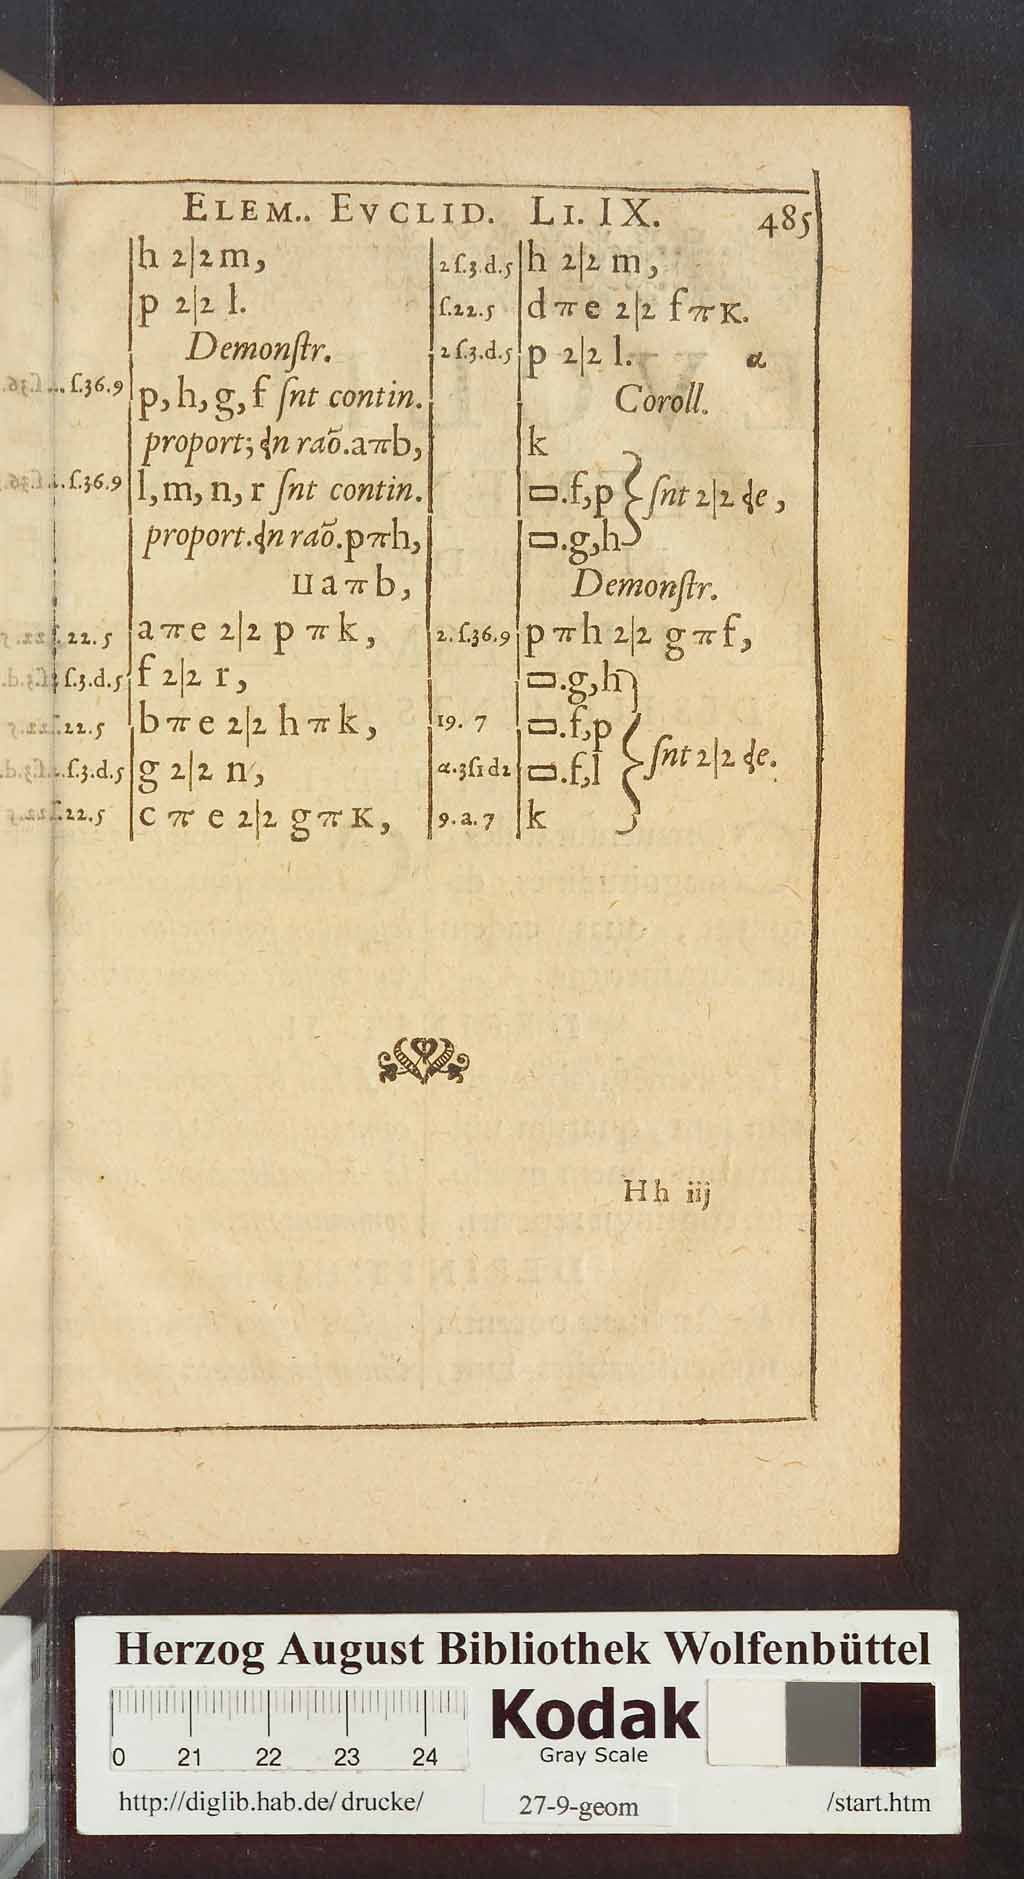 ELEM.. EVCLID. LI. IX. 485
h 2|2 m,
p 2|2 l.
Demonſtr.
ſ.36.9 p, h, g, f ſnt contin.
proport; raõ. aπb,
ſ.36.9 l, m, n, r ſnt contin.
proport. raõ. pπh,
aπb,
22.5 aπe 2|2 pπk,
ſ.3.d.5 f 2|2 r,
22.5 bπe 2|2 hπk,
ſ.3.d.5 g 2|2 n,
22.5 cπe 2|2 gπK,
2ſ.3.d.5 h 2|2 m,
ſ.22.5 dπe 2|2 fπK.
2ſ.3.d.5 p 2|2 l. α
Coroll.
k
▭.f,p } ſnt 2|2
▭.g,h
Demonſtr.
2.ſ.36.9 pπh 2|2 gπf,
▭.g,h
19. 7 ▭.f,p
α.3ſ1d2 ▭.f,l } ſnt 2|2
9.a.7 k
Hh iij
Herzog August Bibliothek Wolfenbüttel
0 21 22 23 24
Kodak
Gray Scale
http://diglib.hab.de/drucke/ 27-9-geom /start.htm